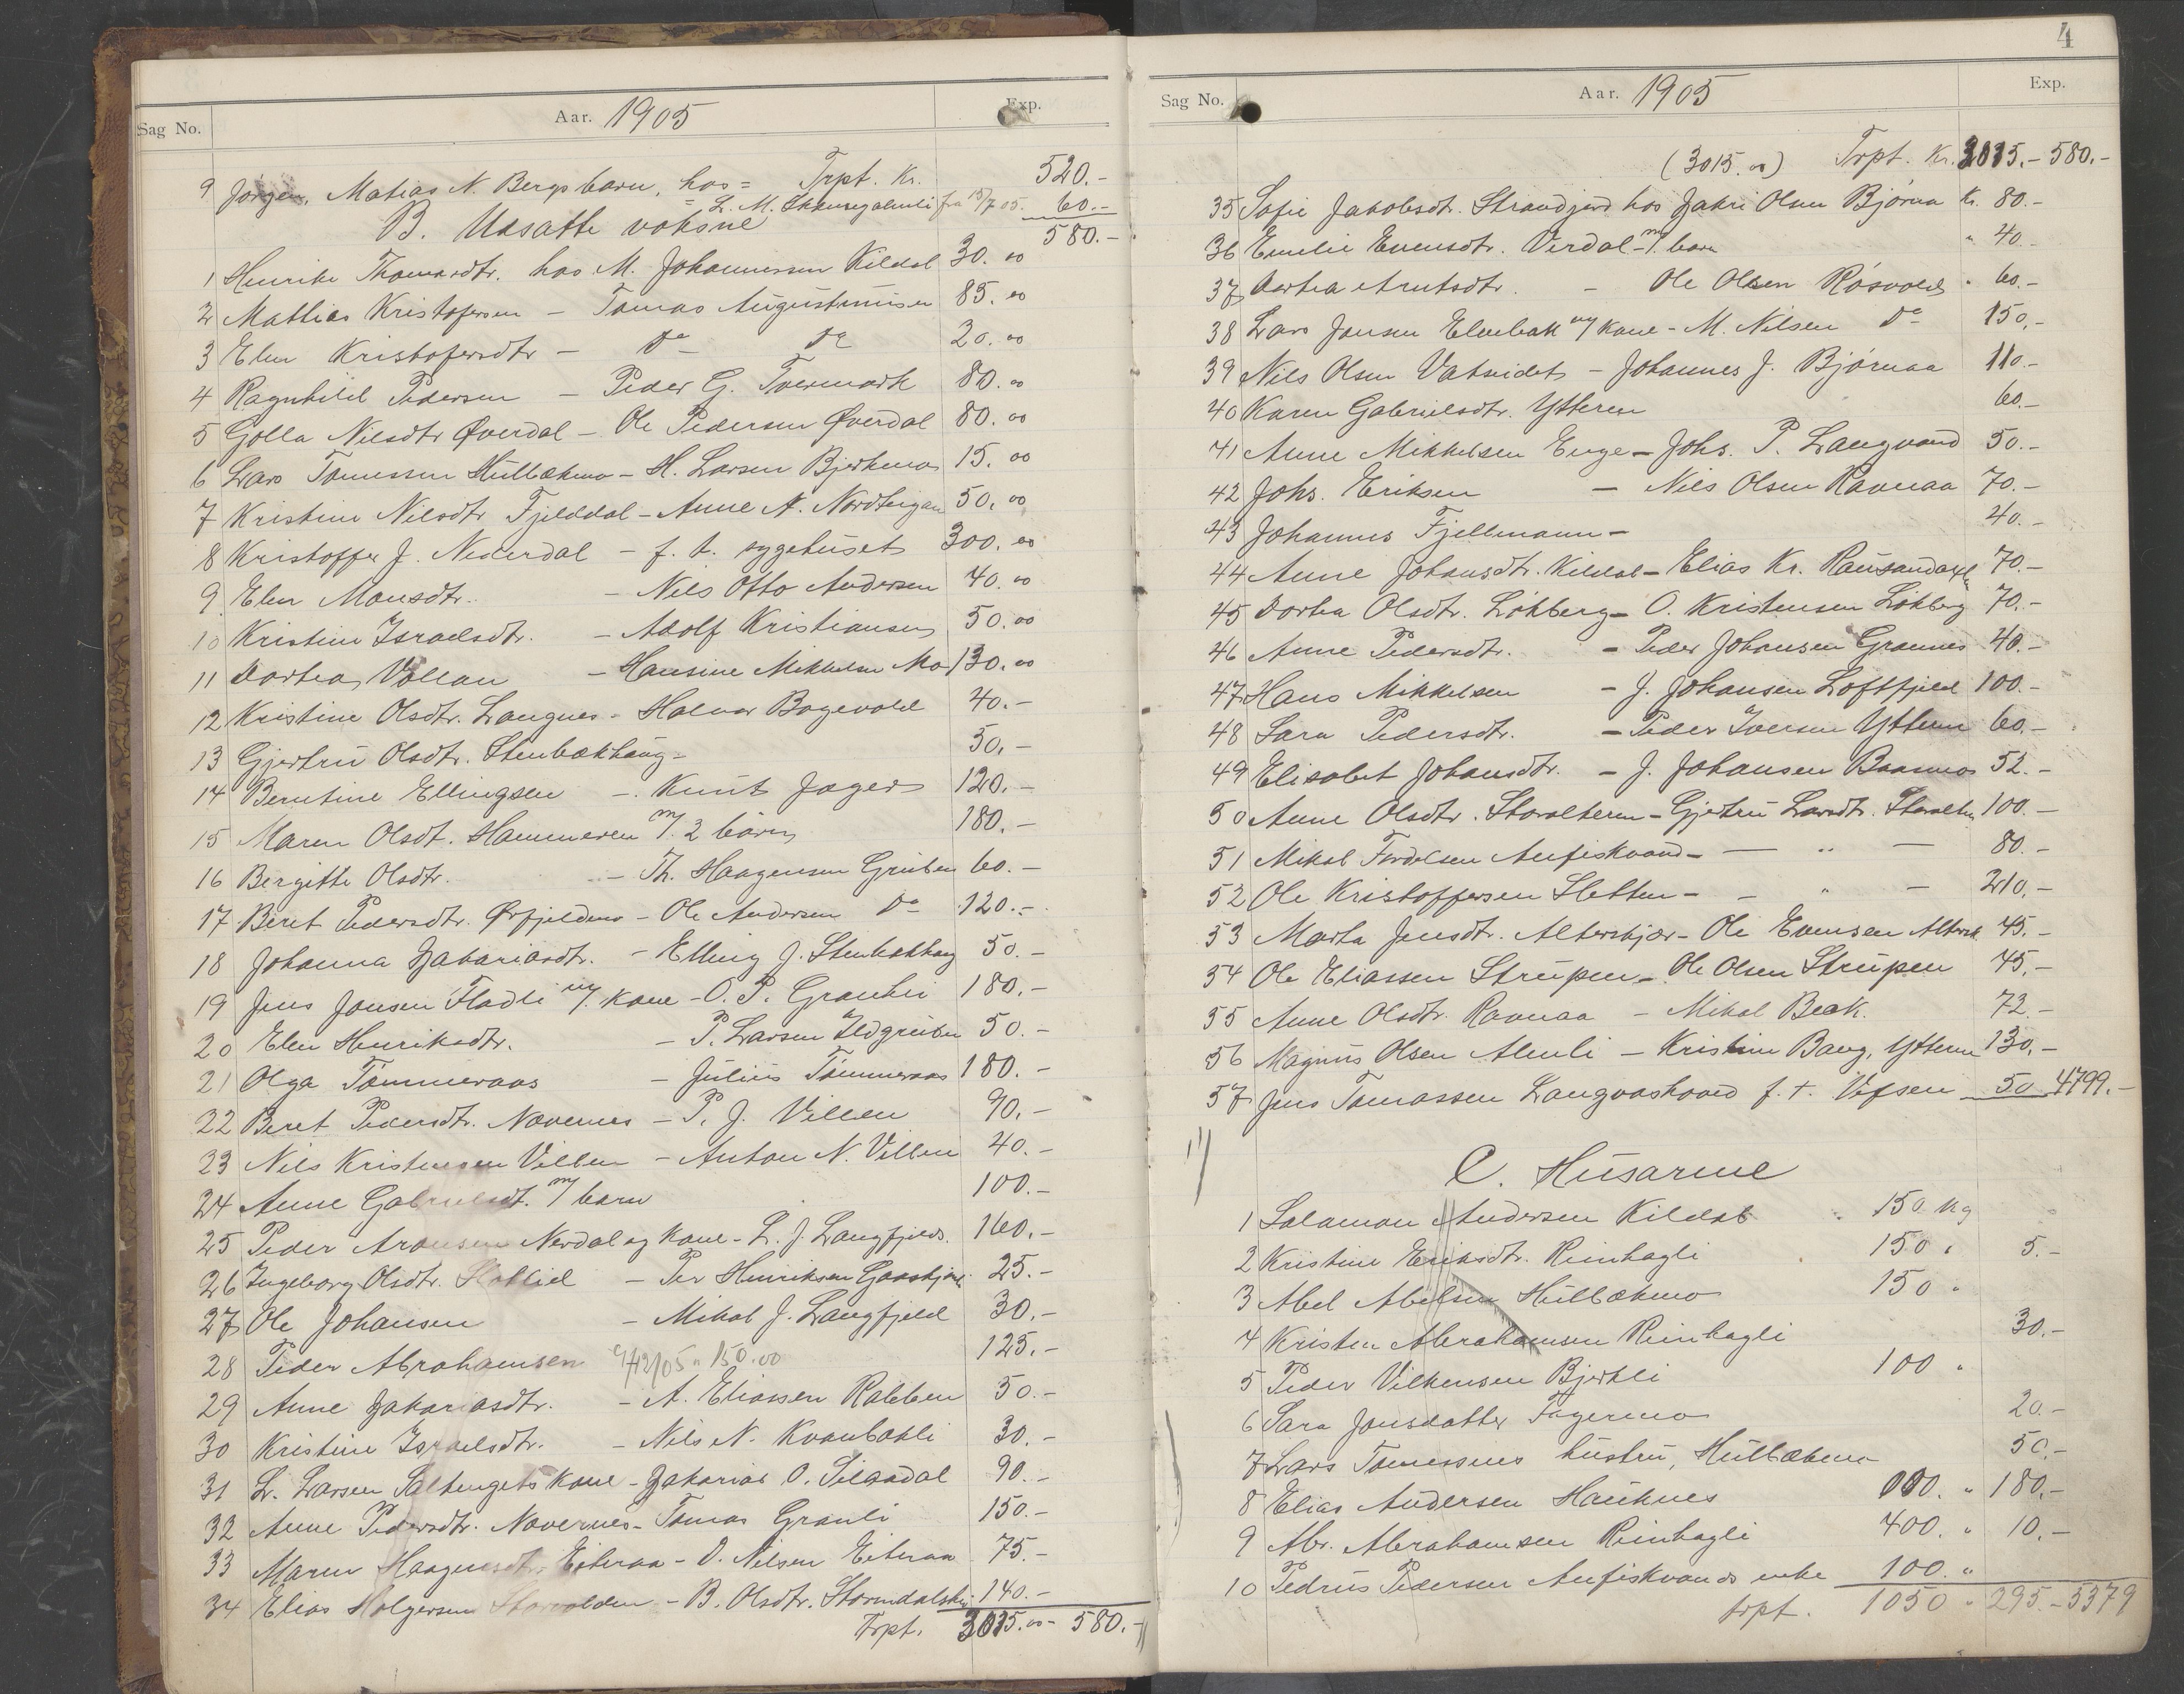 Sag No. Aar. 1905 Exp.
9 Jørgen, Matias N. Bergs barn, hos = Trpt. Kr. 520.-
= L. M. fra 15/7 05. 60.-
B. Utsatte voksne 580.-
1 Henrike Thomasdtr. hos M. Johannessen Kildal 30.00
2 Mathias Kristofersen - Tomas Augustinusen 85.00
3 Elen Kristofersdtr - Do Do 20.00
4 Ragnhild Pedersen - Peder G. Tvermark 80.00
5 Golla Nilsdtr Øverdal - Ole Pedersen Øverdal 80.00
6 Lars Tomessen Hulbækmo - H. Larsen Bjerkmo 15.00
7 Kristine Nilsdtr Fjelddal - Anne N. 50.00
8 Kristoffer J. Nederdal - f. t. sygehuset 300.00
9 Elen Monsdtr. - Nils Otto Andersen 40.00
10 Kristine Israelsdtr. - Adolf Kristiansen 50.00
11 Dortea Vollan - Hansine Mikkelsen Mo 130.00
12 Kristine Olsdtr. Langnes - Halvor Bogevold 40.-
13 Gjertru Olsdtr. Stenbækhaug - 30.-
14 Berntine Ellingsen - Knut Jager 120.-
15 Maren Olsdt. Hammeren m/. 2 børn 180.-
16 Bergitte Olsdtr. - Th. Haagensen Gruben 60.-
17 Beret Pedersdtr. Ørfjeldmo - Ole Andersen Do 120.-
18 Johanna Zakariasdtr. - Elling J. Stenbækhaug 50.-
19 Jens Jonsen Fladli m/. Kone - O. P. Granhei 180.-
20 Elen Henriksdtr. - P. Larsen Ildgruben 50.-
21 Olga Tømmeraas - Julius Tømmeraas 180.-
22 Beret Pedersdtr. Navernes - P. J. Villen 90.-
23 Nils Kristensen Villen - Anton N. Villen 40.-
24 Anne Gabrielsdt. m/ barn 100.-
25 Peder Aronsen Nerdal og Kone - L. J. Langfjeld. 160.-
26 Ingeborg Olsdtr. - Per Henriksen 25.-
27 Ole Johansen - Mikal J. Langfjeld 30.-
28 Peder Abrahamsen 9/12/05 " 150.00 125.-
29 Anne Zakariasdtr. - A. Eliassen Rabben 50.-
30 Kristine Israelsdtr. - Nils N. Kvanbækli 30.-
31 L. Larsen Saltengets Kone - Zakarias O. 90.-
32 Anne Pedersdtr. Navernes - Tomas Granli 150.-
33 Maren Haagensdtr. Eiteraa - O. Nilsen Eiteraa 75.-
34 Elias Holgersen Storvolden - B. Olsdtr. 140.-
Trpt. 3015.00 - 580.-
4
Sag No. Aar. 1905 Exp.
(3015.00) Trpt. Kr. 3015.- 580.-
35 Sofie Jakobsdtr. Strandjord hos Jakri Olsen Bjørnaa Kr. 80.-
36 Emelie Evensdtr. Verdal - m/. barn " 40.-
37 Dortea Arntsdtr. - Ole Olsen Røsvold " 60.-
38 Lars Jonsen Elvebak m/ Kone - M. Nilsen Do 150.-
39 Nils Olsen Vatneidet - Johannes J. Bjørnaa 110.-
40 Karen Gabrielsdtr. Ytteren 60.-
41 Anne Mikkelsen Enge - Johs. P. Langvand 50.-
42 Johs. Eriksen - Nils Olsen Ravnaa 70.-
43 Johannes Fjellmann - 40.-
44 Anne Johansdtr. Kildal - Elias Kr. 70.-
45 Dortea Olsdtr. Løkberg - O. Kristensen Løkberg 70.-
46 Anne Pedersdtr. - Peder Johansen Grannes 40.-
47 Hans Mikkelsen - J. Johansen Loftfjeld 100.-
48 Sara Pedersdtr. - Peder Iversen Ytteren 60.-
49 Elisabet Johansdtr. - J. Johansen Baasmo 52.-
50 Anne Olsdtr. Storalteren - Gjertru Larsdtr. Storaltern 100.-
51 Mikal Fordelsen Anfiskvand - — " — 80.-
52 Ole Kristoffersen Sletten - - " — 210.-
53 Marta Jensdtr. Alterskjær - Ole Evensen Altersk. 45.-
54 Ole Eliassen Strupen - Ole Olsen Strupen 45.-
55 Anne Olsdtr. Ravnaa - Mikal Bæk. 72.-
56 Magnus Olsen Alenli - Kristine Bang, Ytteren 130.-
57 Jens Tomassen f. t. Vefsen 50 4799.-
C. Husarme
1 Salamon Andersen Kildal 150 Kg
2 Kristine Eriksdtr. Reinhagli 150 " 5.-
3 Abel Abelsen Hulbækmo 150 "
4 Kristen Abrahamsen Reinhagli 30.-
5 Peder Vilhemsen Bjerkli 100 "
6 Sara Jonsdatter Fagermo 20.-
7 Lars Tomessens hustru, Hulbækmo 50.-
8 Elias Andersen Hauknes 000. " 180.-
9 Abr. Abrahamsen Reinhagli 400. " 10.-
10 Pedrus Pedersen Anfiskvands enke 100. "
trpt. 1050 " 295.- 5379